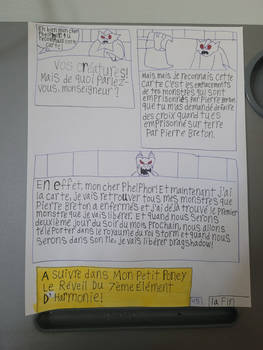 Eh bien mon cher
Phelphor, tu
reconnais cette
carte?
Vos créatures!
Mais de quoi Parlez
vous, monseigneur?
Mais, mais je reconnais cette
Carte c'est les emplacements
de tes monstres qui sont
emprisonnés par Pierre Breton,
que tu m'as demandé de faire
des croix quand tu es
emprisonné sur terre
Par Pierre Breton.
En effet, mon cher Phelphor! Et maintenant j'ai
la carte, je vais retrouver tous mes monstres que
Pierre Breton a enfermés et j'ai déjà trouvé le premier
monstre que je vais libérer. Et quand nous serons
deuxième jour du soir du mois prochain, nous allons
téléporter dans le royaume du roi Storm et quand nous
serons dans son île, je vais libérer Dragshadow!
A suivre dans Mon Petit Poney
Le Réveil Du 7ème Elément
D'Harmonie!
la Fin